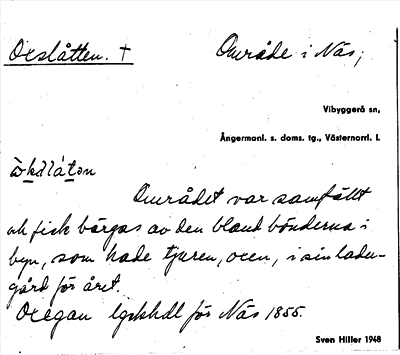 Oxslåtten. †
Område i Näs,
Vibyggerå sn,
Ångermanl. s. doms. tg., Västernorrl. l.
Området var samfällt
och fick bärgas av den bland bönderna i
byn, som hade tjuren, oxen, i sin ladu-
gård för året.
Oxegan lgskhdl för Näs 1855.
Sven Hiller 1948